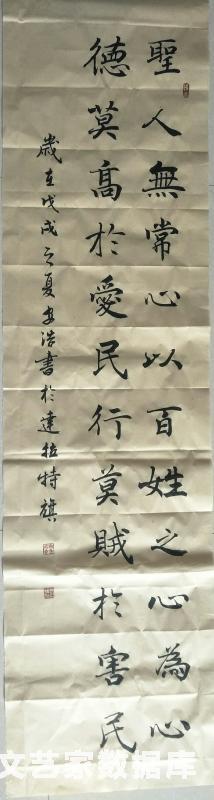 聖人無常心以百姓之心為心
德莫高於愛民行莫賊於害民
歲在戊戌之夏安浩書於達拉特旗
文艺家数据库